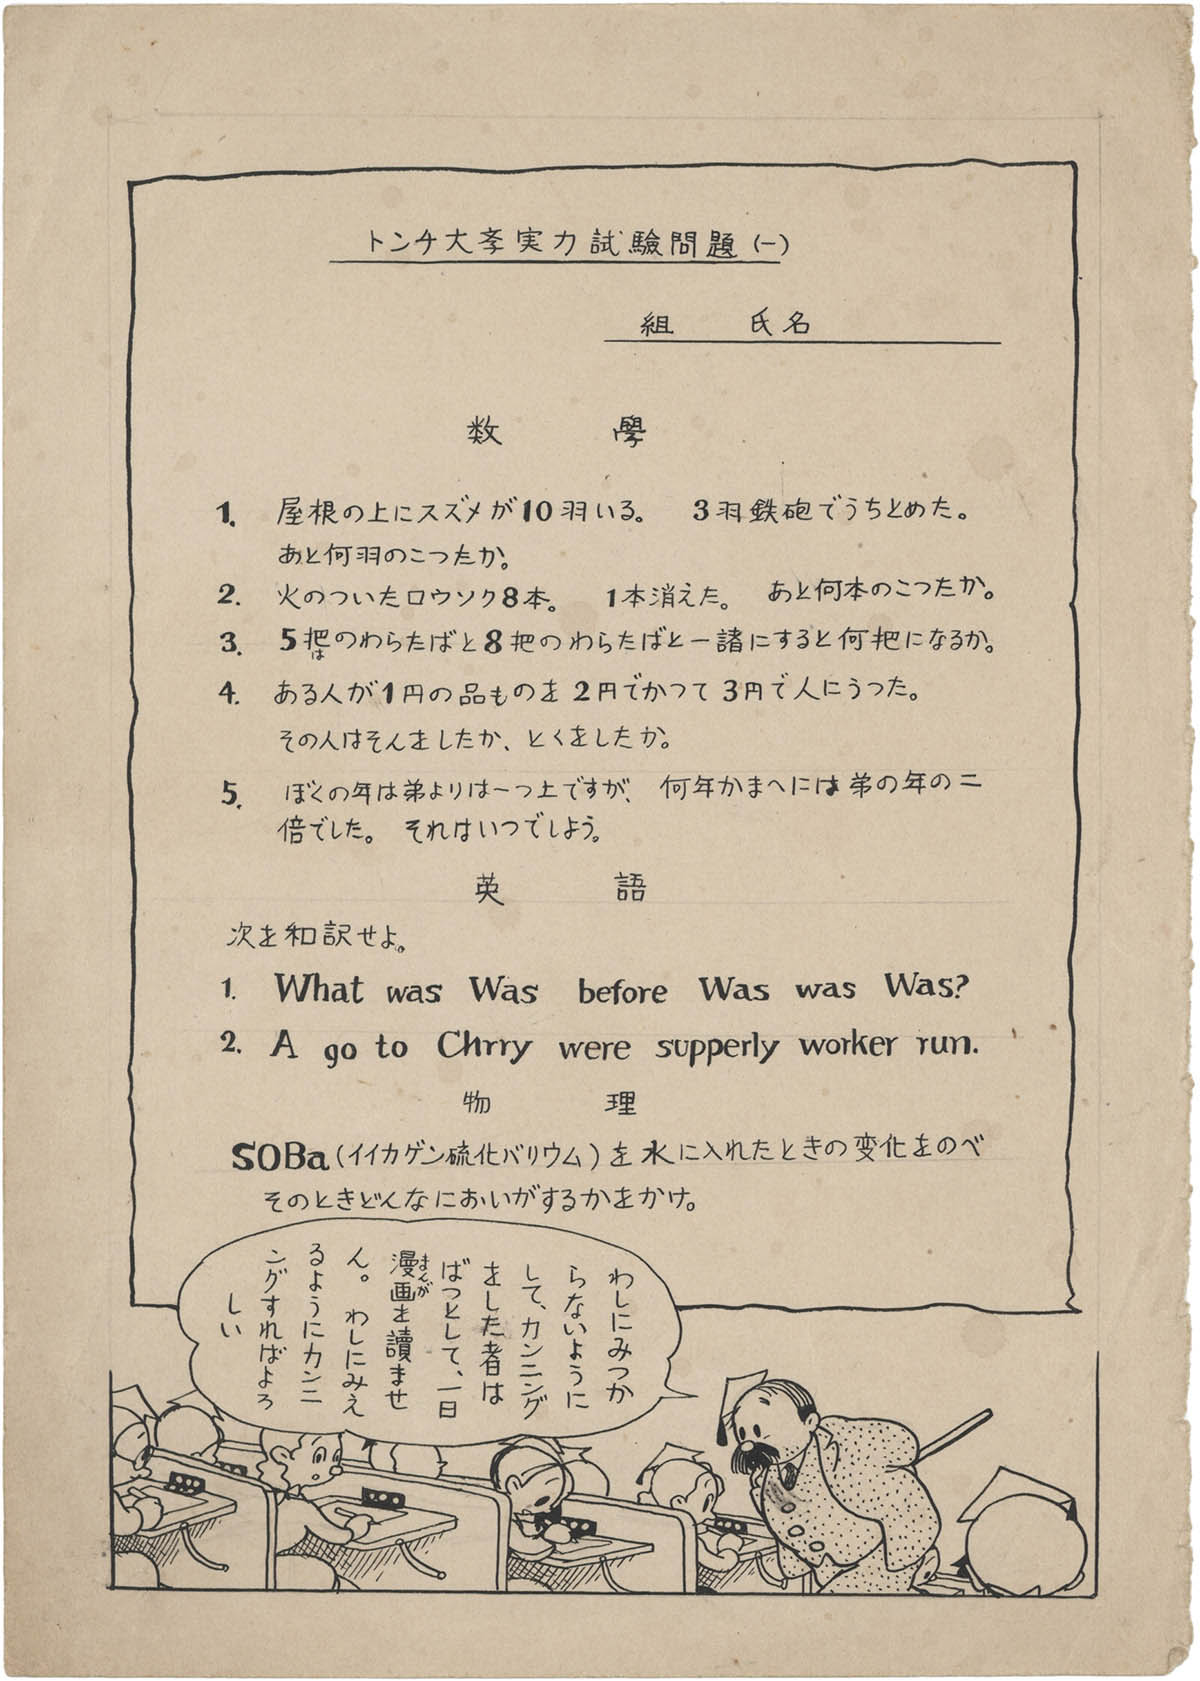 トンチ大孝実力試験問題(一)
組　　氏名
数　　學
1. 屋根の上にスズメが10羽いる。　3羽鉄砲でうちとめた。
あと何羽のこつたか。
2. 火のついたロウソク8本。　1本消えた。　あと何本のこつたか。
3. 5把のわらたばと8把のわらたばと一諸にすると何把になるか。
は
4. ある人が1円の品ものを2円でかつて3円で人にうつた。
その人はそんをしたか、とくをしたか。
5. ぼくの年は弟よりは一つ上ですが、　何年かまへには弟の年の二
倍でした。　それはいつでしよう。
英　　語
次を和訳せよ。
1. What was Was before Was was Was?
2. A go to Chrry were supperly worker run.
物　　理
SOBa(イイカゲン硫化バリウム)を水に入れたときの変化をのべ
そのときどんなにおいがするかをかけ。
わしにみつか
らないように
して、カンニング
をした者は
ばつとして、一日
漫画を讀ませ
まんが
ん。　わしにみえ
るようにカンニ
ングすればよろ
しい